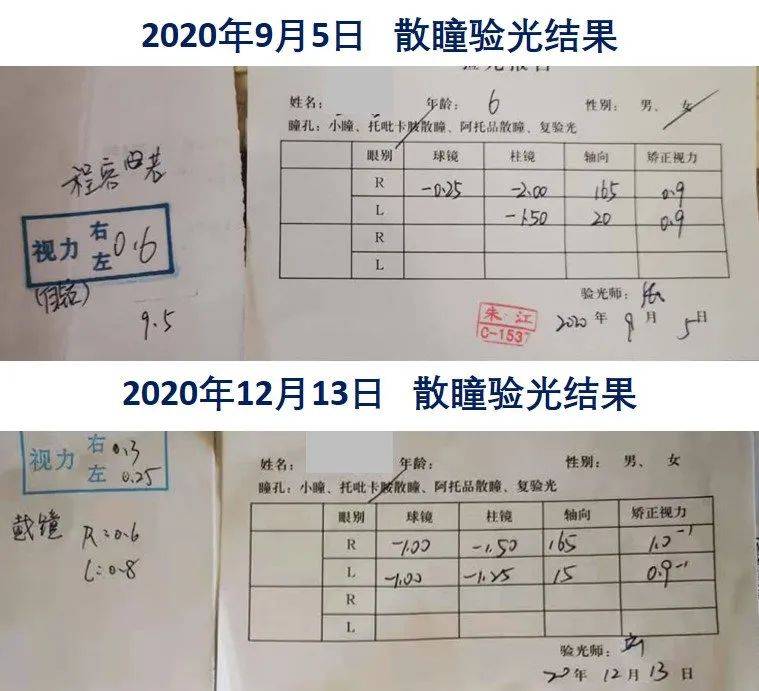 2020年9月5日 散瞳验光结果
姓名: 年龄: 6 性别: 男、女
瞳孔: 小瞳、托吡卡胺散瞳、阿托品散瞳、复验光
眼别 球镜 柱镜 轴向 矫正视力
R -0.25 -2.00 165 0.9
L -1.50 20 0.9
R
L
验光师:
2020年 9月 5日
朱江
C-1537
视力 右 左 0.6
9.5
2020年12月13日 散瞳验光结果
视力 右 0.3
左 0.25
戴镜 R:0.6
L:0.8
姓名: 年龄: 性别: 男、女
瞳孔: 小瞳、托吡卡胺散瞳、阿托品散瞳、复验光
眼别 球镜 柱镜 轴向 矫正视力
R -1.00 -1.50 165 1.0⁻¹
L -1.00 -1.25 15 0.9⁻¹
R
L
验光师:
20年 12月 13日